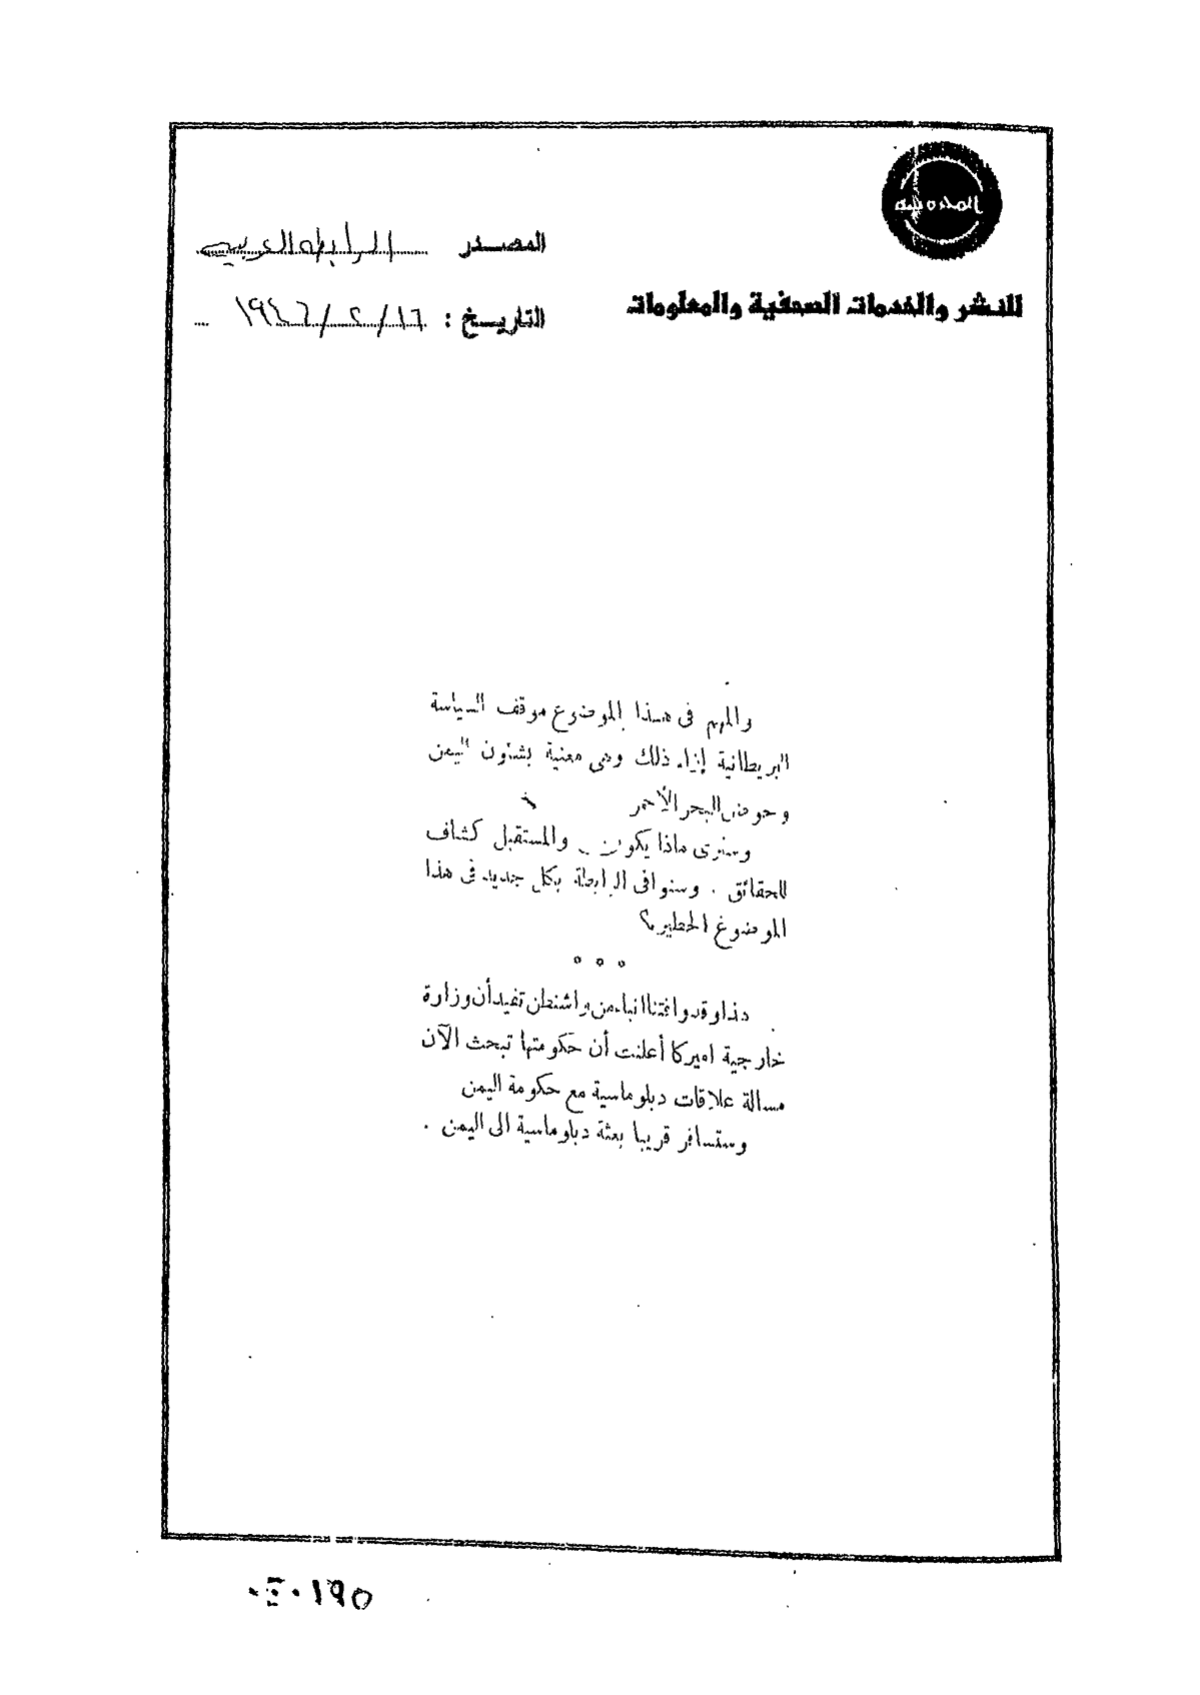 المصدر الرابطه العربيه
التاريخ : ١٦ / ٢ / ١٩٤٦
للنشر والخدمات الصحفية والمعلومات
والمهم فى هـذا الموضوع موقف السياسة
البريطانية إزاء ذلك وهى معنية بشئون اليمن
وحوض البحر الأحمر
وسنرى ماذا يكون .. والمستقبل كشاف
للحقائق . وسنوافى الرابطة بكل جديد فى هذا
الموضوع الخطير ؟
° ° °
هذا وقد وافتنا انباء من واشنطن تفيد أن وزارة
خارجية اميركا أعلنت أن حكومتها تبحث الآن
مسالة علاقات دبلوماسية مع حكومة اليمن
وستسافر قريبا بعثة دبلوماسية الى اليمن .